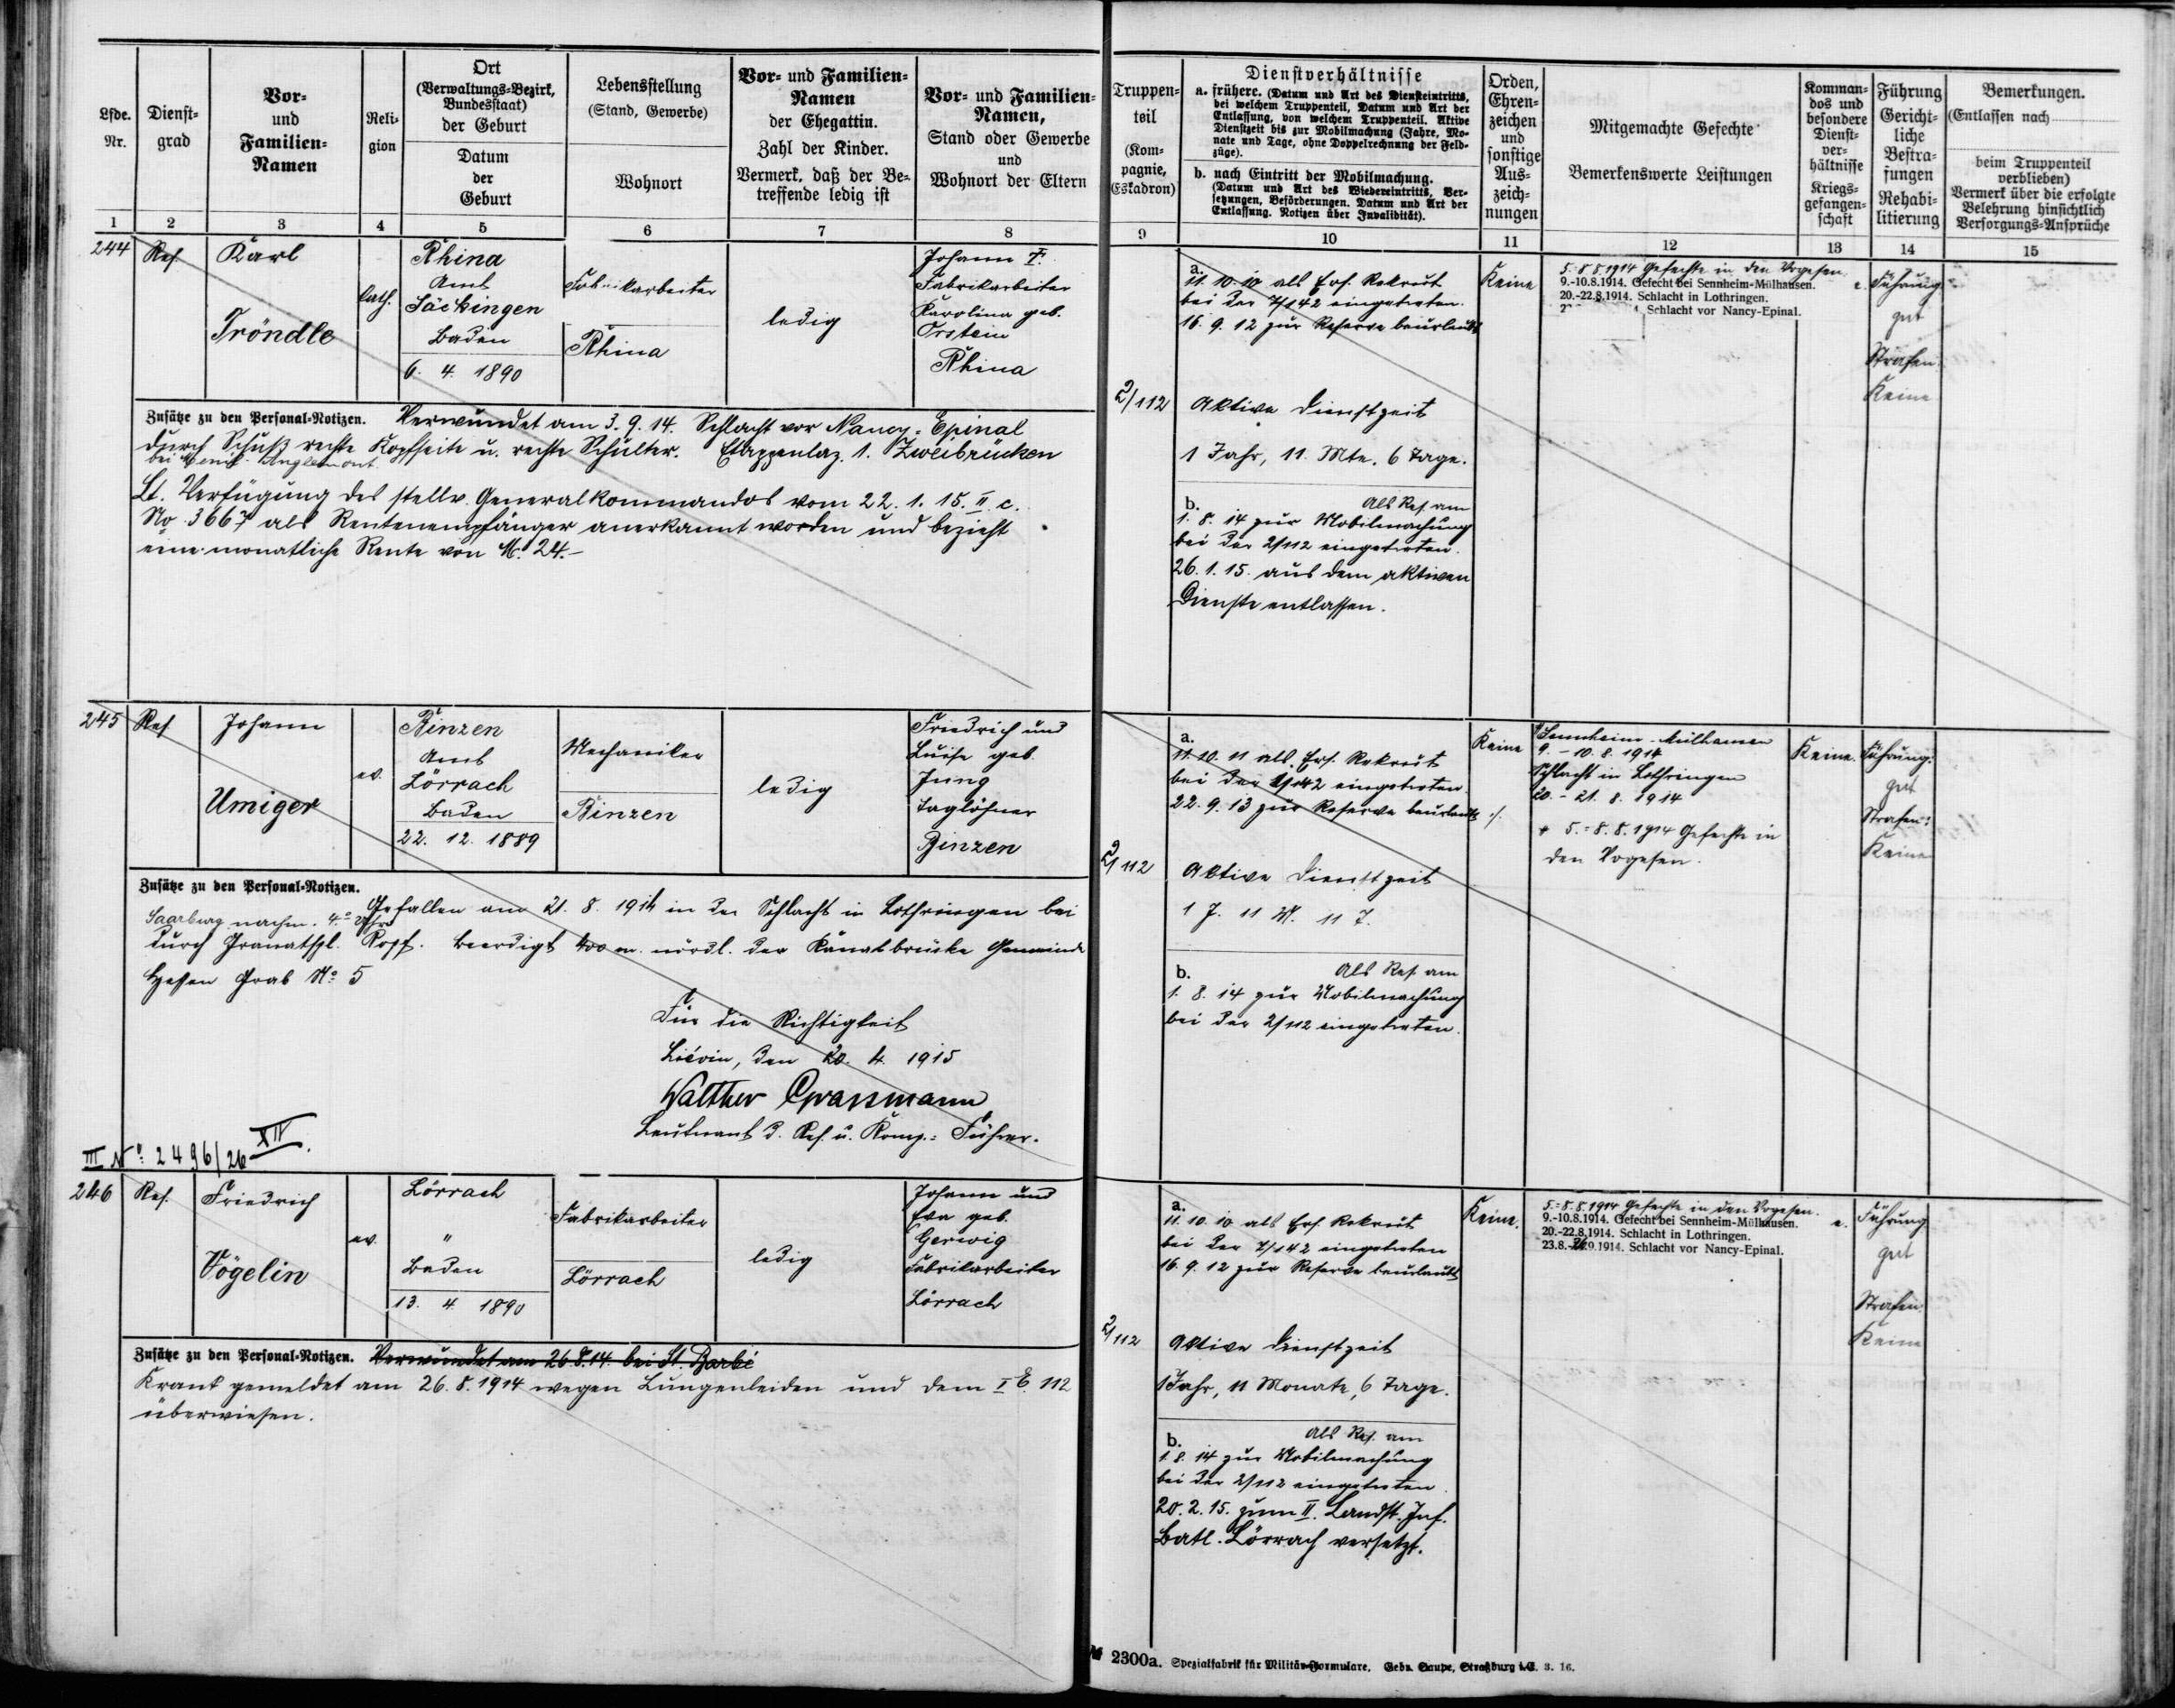 Lfde. Nr.
Dienst-
grad
Vor-
und
Familien-
Namen
Reli-
gion
Ort
(Verwaltungs-Bezirk,
Bundesstaat)
der Geburt
Datum
der
Geburt
Lebensstellung
(Stand, Gewerbe)
Wohnort
Vor- und Familien-
Namen
der Ehegattin.
Zahl der Kinder.
Vermerk, daß der Be-
treffende ledig ist
Vor- und Familien-
Namen,
Stand oder Gewerbe
und
Wohnort der Eltern
Truppen-
teil
(Kom-
pagnie,
Eskadron)
Dienstverhältnisse
a. frühere. (Datum und Art des Diensteintritts,
bei welchem Truppenteil, Datum und Art der
Entlassung, von welchem Truppenteil. Aktive
Dienstzeit bis zur Mobilmachung (Jahre, Mo-
nate und Tage, ohne Doppelrechnung der Feld-
züge).
b. nach Eintritt der Mobilmachung.
(Datum und Art des Wiedereintritts, Ver-
setzungen, Beförderungen. Datum und Art der
Entlassung. Notizen über Invalidität).
Orden,
Ehren-
zeichen
und
sonstige
Aus-
zeich-
nungen
Mitgemachte Gefechte
Bemerkenswerte Leistungen
Komman-
dos und
besondere
Dienst-
ver-
hältnisse
Kriegs-
gefangen-
schaft
Führung
Gericht-
liche
Bestra-
fungen
Rehabi-
litierung
Bemerkungen.
(Entlassen nach
beim Truppenteil
verblieben)
Vermerk über die erfolgte
Belehrung hinsichtlich
Versorgungs-Ansprüche
1 2 3 4 5 6 7 8 9 10 11 12 13 14 15
244 Res.
Karl
Tröndle
kath.
Rhina
Amt
Säckingen
Baden
6. 4. 1890
Fabrikarbeiter
Rhina
ledig
Johann
Fabrikarbeiter
Karolina geb.
Orstein
Rhina
Zusätze zu den Personal-Notizen. Verwundet am 3. 9. 14. Schlacht vor Nancy-Epinal
durch Schuß rechte Kopfseite u. rechte Schulter. Etappenlaz. 1. Zweibrücken
bei Anglemont.
Lt. Verfügung des stellv. Generalkommandos vom 22. 1. 15. II. c.
No 3667 als Rentenempfänger anerkannt worden und bezieht
eine monatliche Rente von M. 24.-
2/112
a.
11. 10. 10 als Ers. Rekrut
bei der 7/142 eingetreten.
16. 9. 12 zur Reserve beurlaubt
Aktive Dienstzeit
1 Jahr, 11. Mte. 6 Tage.
b. Als Res. am
1. 8. 14 zur Mobilmachung
bei der 2/112 eingetreten.
26. 1. 15. aus dem aktiven
Dienste entlassen.
Keine
5.-8.8.1914 Gefechte in den Vogesen.
9.-10.8.1914. Gefecht bei Sennheim-Mülhausen.
20.-22.8.1914. Schlacht in Lothringen.
Schlacht vor Nancy-Epinal.
Führung
gut
Strafen:
Keine
245 Res.
Johann
Umiger
ev.
Binzen
Amt
Lörrach
Baden
22. 12. 1889
Mechaniker
Binzen
ledig
Friedrich und
Luise geb.
Jung
Taglöhner
Binzen
Zusätze zu den Personal-Notizen.
Gefallen am 21. 8. 1914 in der Schlacht in Lothringen bei
Saarburg nachm. 4 Uhr
durch Granatspl. Kopf. Beerdigt 400 m. nördl. der Kanalbrücke Gemeinde
Hessen Grab No 5
Für die Richtigkeit
Liévin, den 20. 4. 1915
Walther Grassmann
Leutnant d. Res. u. Komp.-Führer.
2/112
a.
11. 10. 11 als Ers. Rekrut
bei der 2/142 eingetreten.
22. 9. 13 zur Reserve beurlaubt
Aktive Dienstzeit
1 J. 11 M. 11 T.
b. Als Res. am
1. 8. 14 zur Mobilmachung
bei der 2/112 eingetreten.
Keine
Sennheim-Mülhausen
9. - 10. 8. 1914
Schlacht in Lothringen
20. - 21. 8. 1914
+ 5.-8.8.1914 Gefechte in
den Vogesen.
Keine.
Führung:
gut
Strafen:
Keine
III No: 2496/26 XIV.
246 Res.
Friedrich
Vögelin
ev.
Lörrach
"
Baden
13. 4. 1890
Fabrikarbeiter
Lörrach
ledig
Johann und
Eva geb.
Gerwig
Fabrikarbeiter
Lörrach
Zusätze zu den Personal-Notizen. Verwundet am 26.8.14. bei St. Barbé
Krank gemeldet am 26. 8. 1914 wegen Lungenleiden und dem I E. 112
überwiesen.
2/112
a.
11. 10. 10 als Ers. Rekrut
bei der 7/142 eingetreten
16. 9. 12 zur Reserve beurlaubt
Aktive Dienstzeit
1 Jahr, 11 Monate, 6 Tage.
b. Als Res. am
1. 8. 14 zur Mobilmachung
bei der 2/112 eingetreten.
20. 2. 15. zum II. Landst. Inf.
Batl. Lörrach versetzt.
Keine.
5.-8.8.1914 Gefechte in den Vogesen.
9.-10.8.1914. Gefecht bei Sennheim-Mülhausen.
20.-22.8.1914. Schlacht in Lothringen.
23.8.-26.9.1914. Schlacht vor Nancy-Epinal.
Führung
gut
Strafen:
Keine
№ 2300a. Spezialfabrik für Militär-Formulare. Gebr. Saupe, Straßburg i.E. 3. 16.